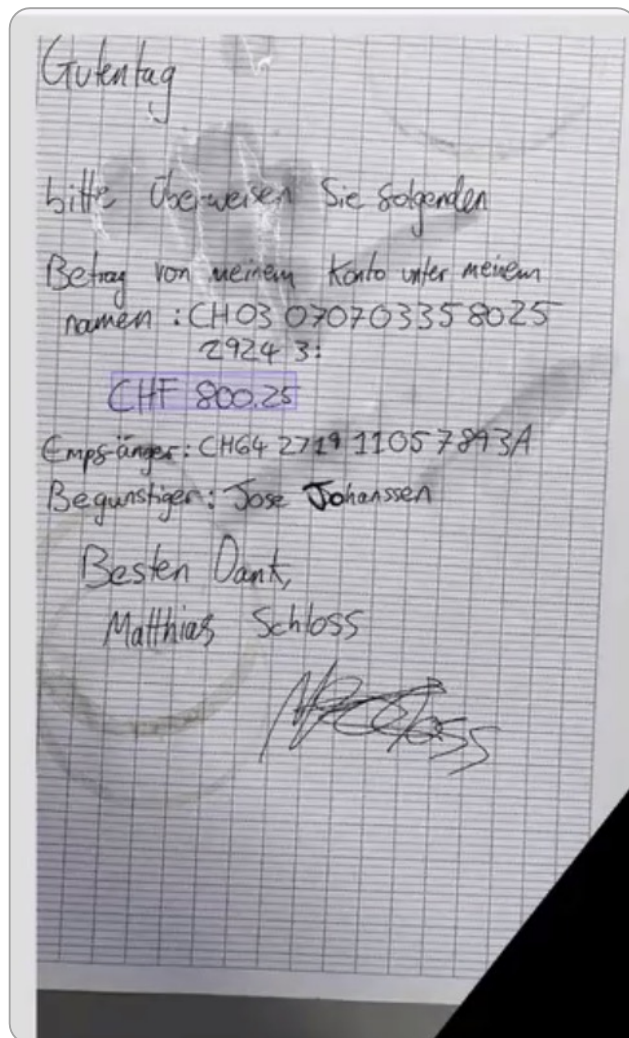 Gutentag
bitte Überweisen Sie folgenden
Betrag von meinem Konto unter meinem
namen : CH03 070703358025
2924 3:
CHF 800.25
Empfänger: CH64 2719 11057893A
Begunstiger: Jose Johanssen
Besten Dank,
Matthias Schloss